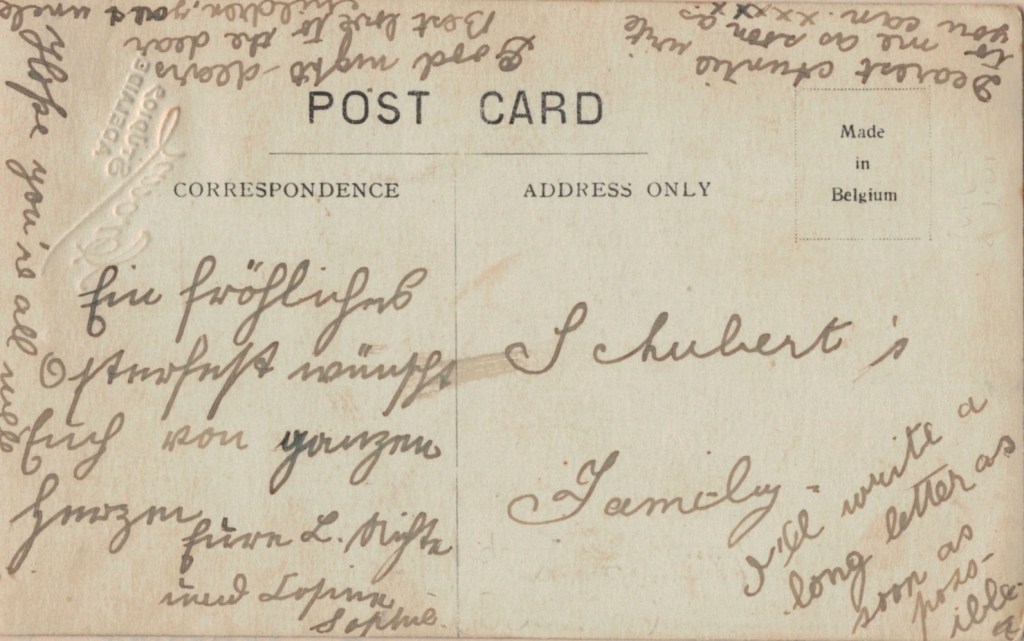 POST CARD
CORRESPONDENCE
ADDRESS ONLY
Made
in
Belgium
Ein fröhliches
Osterfest wünscht
Euch von ganzen
Herzen
Eure L. Nichte
und Cosine
Sophie.
Schubert's
Family-
I'll write a
long letter as
soon as
poss-
ible
Hope you're all well
Dearest Auntie write
to me as soon as
you can. xxxx
Good night dears
Best love to the dear
children, you & uncle